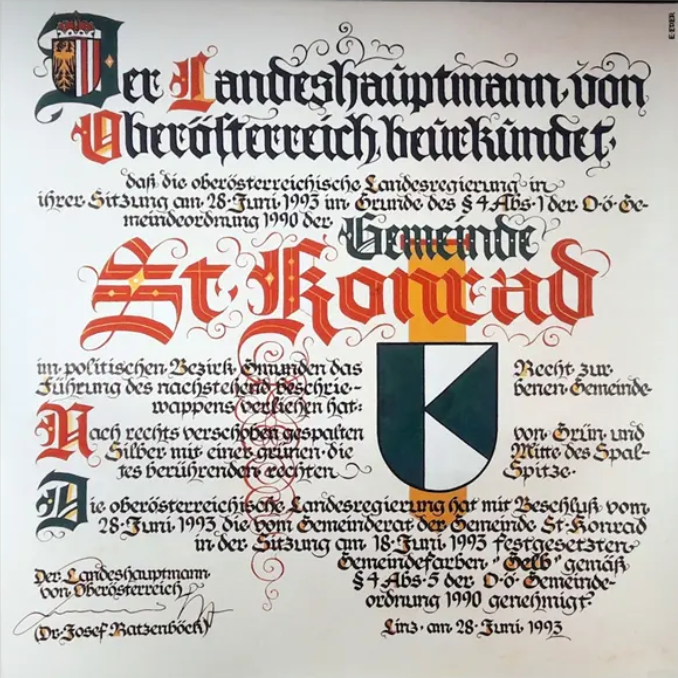 Der Landeshauptmann von
Oberösterreich beurkundet,
daß die oberösterreichische Landesregierung in
ihrer Sitzung am 28. Juni 1993 im Grunde des § 4 Abs. 1 der O.ö. Ge-
meindeordnung 1990 der
Gemeinde
St. Konrad
im politischen Bezirk Gmunden das Recht zur
Führung des nachstehend beschrie- benen Gemeinde-
wappens verliehen hat:
Nach rechts verschoben gespalten von Grün und
Silber mit einer grünen, die Mitte des Spal-
tes berührenden rechten Spitze.
Die oberösterreichische Landesregierung hat mit Beschluß vom
28. Juni 1993 die vom Gemeinderat der Gemeinde St. Konrad
in der Sitzung am 18. Juni 1993 festgesetzten
Gemeindefarben "Gelb" gemäß
§ 4 Abs. 5 der O.ö. Gemeinde-
ordnung 1990 genehmigt.
Der Landeshauptmann
von Oberösterreich
(Dr. Josef Ratzenböck)
Linz, am 28. Juni 1993
E. EDER